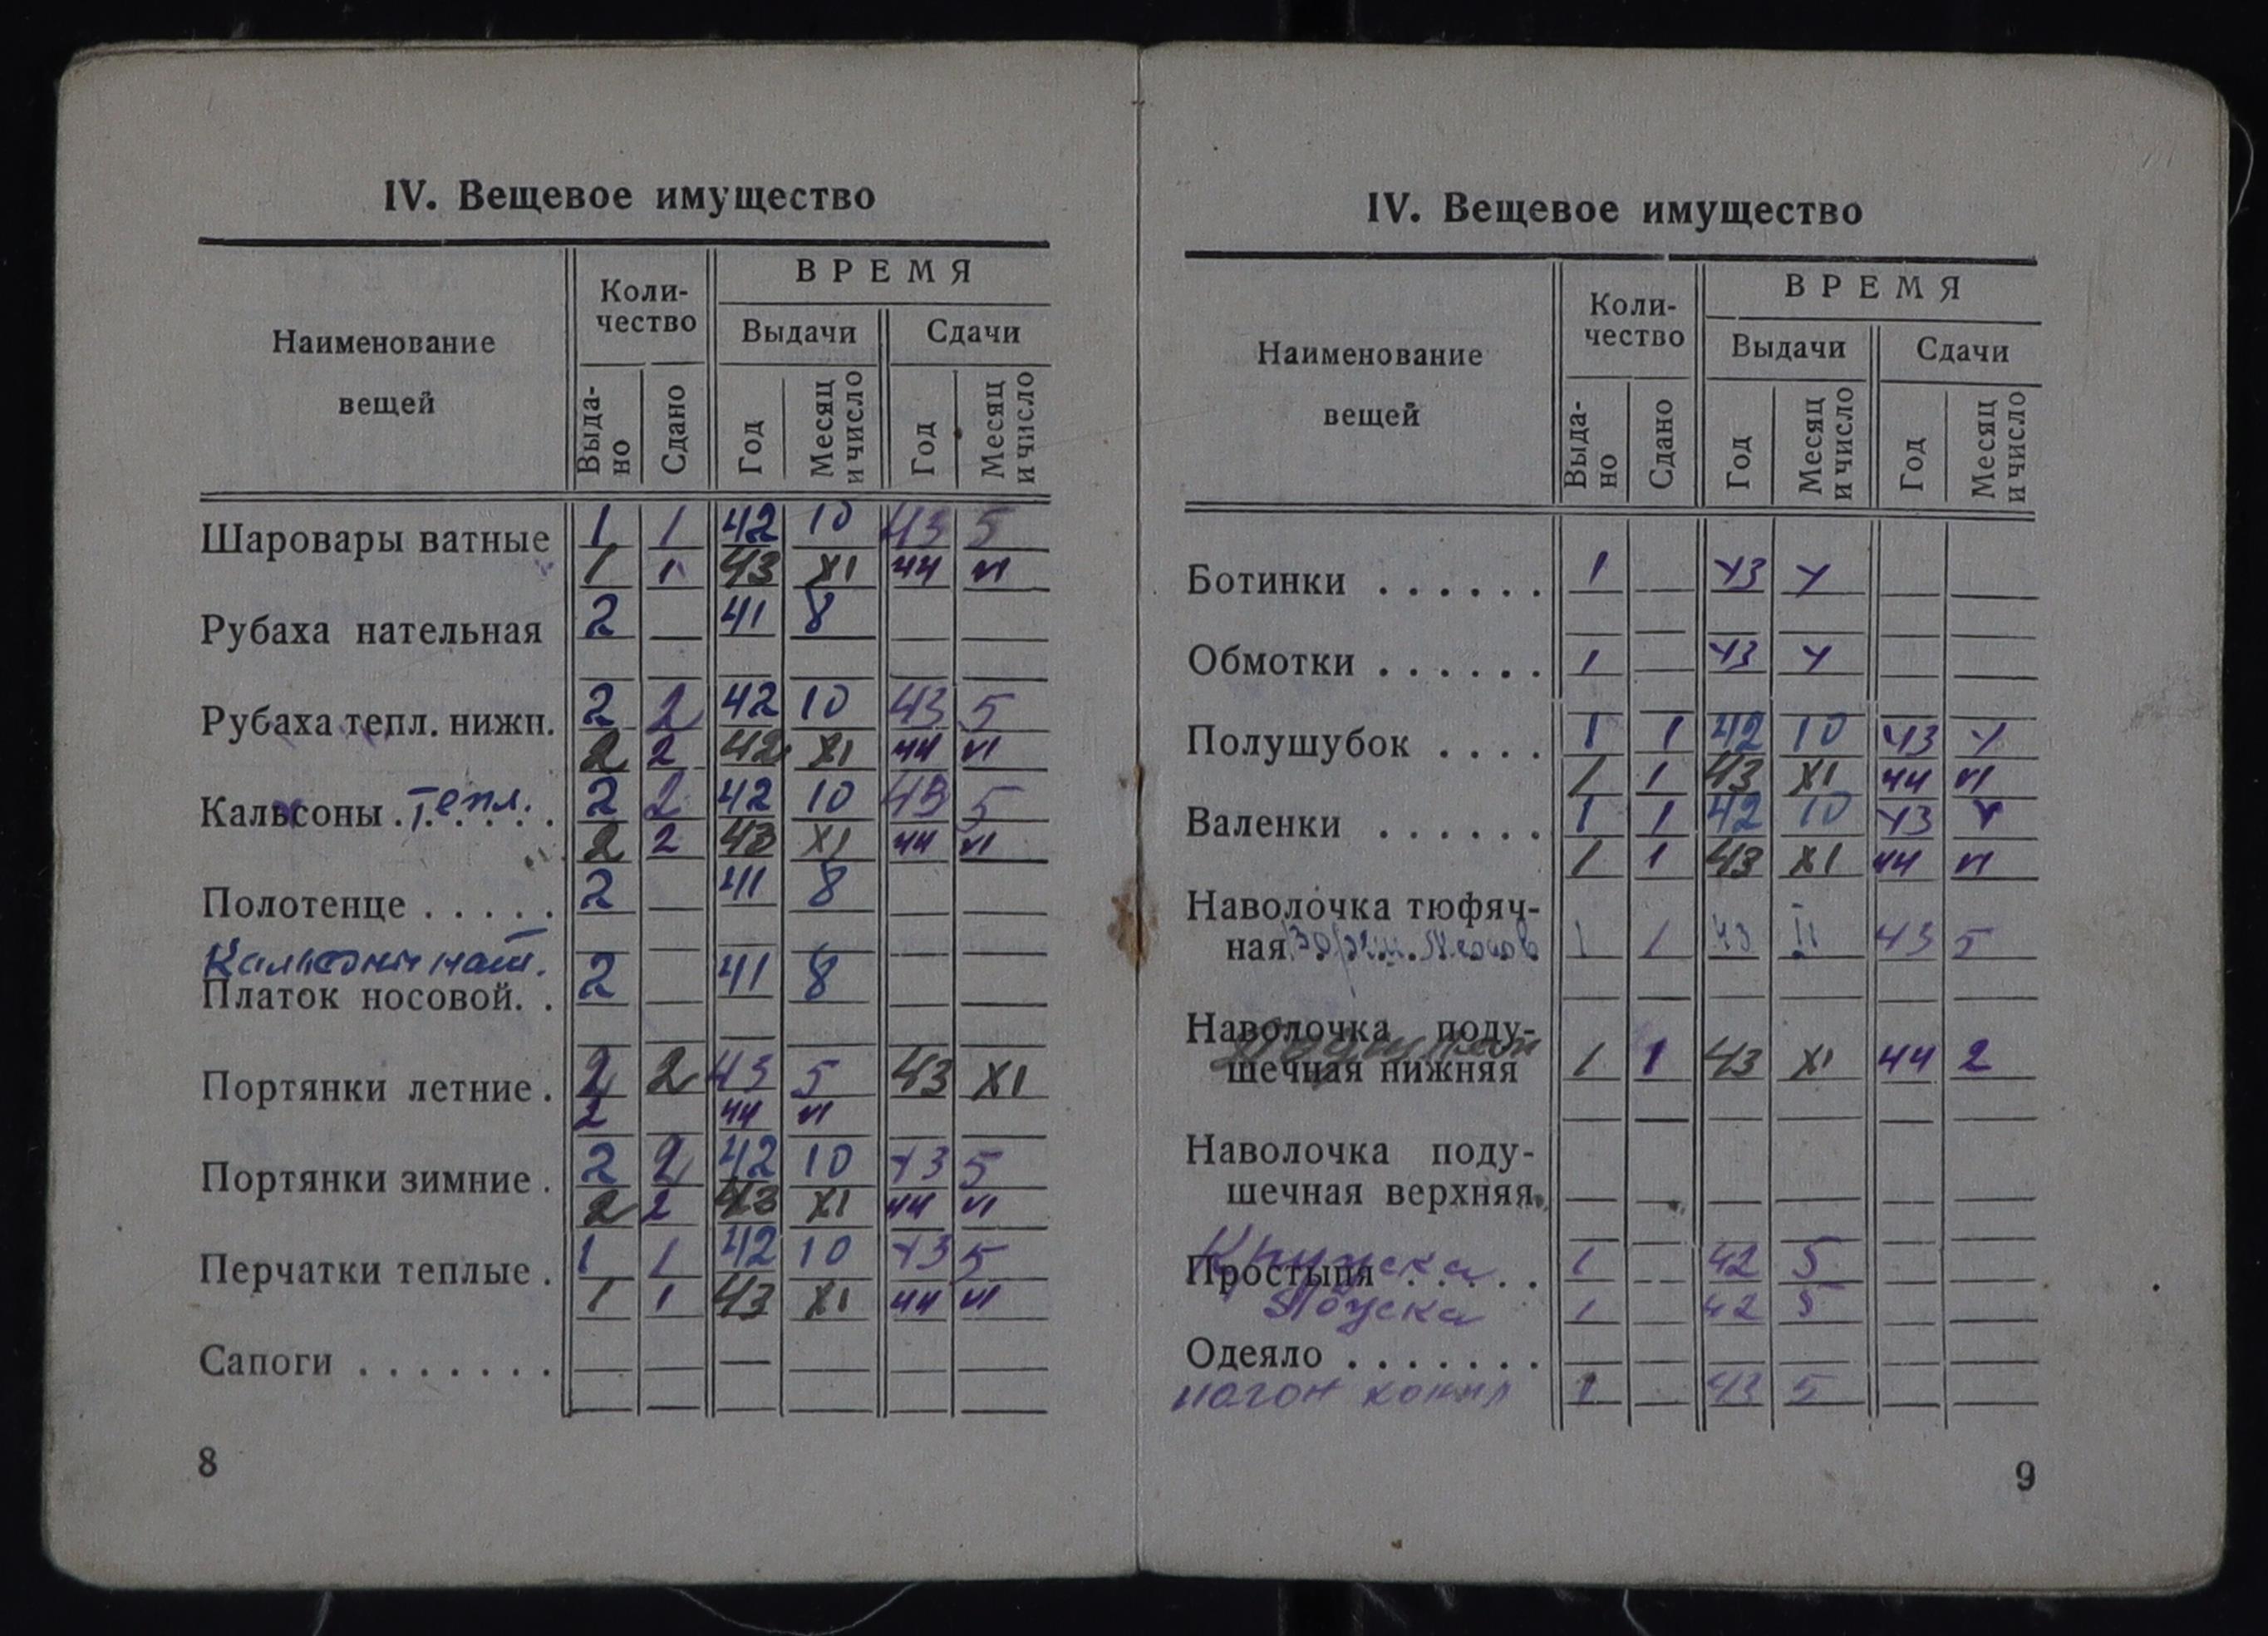 IV. Вещевое имущество
Наименование вещей
Коли-
чество
ВРЕМЯ
Выдачи Сдачи
Выда-
но Сдано Год Месяц
и число Год Месяц
и число
Шаровары ватные 1 1 42 10 43 5
1 1 43 XI 44 VI
Рубаха нательная 2 41 8
Рубаха тепл. нижн. 2 2 42 10 43 5
2 2 42 XI 44 VI
Кальсоны . тепл. 2 2 42 10 43 5
2 2 43 XI 44 VI
Полотенце . . . . . 2 41 8
Кальсоны нат.
Платок носовой. . 2 41 8
Портянки летние . 2 2 43 5 43 XI
2 44 VI
Портянки зимние . 2 2 42 10 43 5
2 2 43 XI 44 VI
Перчатки теплые . 1 1 42 10 43 5
1 1 43 XI 44 VI
Сапоги . . . . . . .
8
IV. Вещевое имущество
Наименование вещей
Коли-
чество
ВРЕМЯ
Выдачи Сдачи
Выда-
но Сдано Год Месяц
и число Год Месяц
и число
Ботинки . . . . . . 1 43 Y
Обмотки . . . . . . 1 43 Y
Полушубок . . . . 1 1 42 10 43 Y
1 1 43 XI 44 VI
Валенки . . . . . . 1 1 42 10 43 Y
1 1 43 XI 44 VI
Наволочка тюфяч-
ная 1 1 43 II 43 5
Наволочка поду-
шечная нижняя 1 1 43 XI 44 2
Наволочка поду-
шечная верхняя.
Кружка
Простыня . . . . . 1 42 5
Ложка 1 42 5
Одеяло . . . . . . .
погон 1 43 5
9